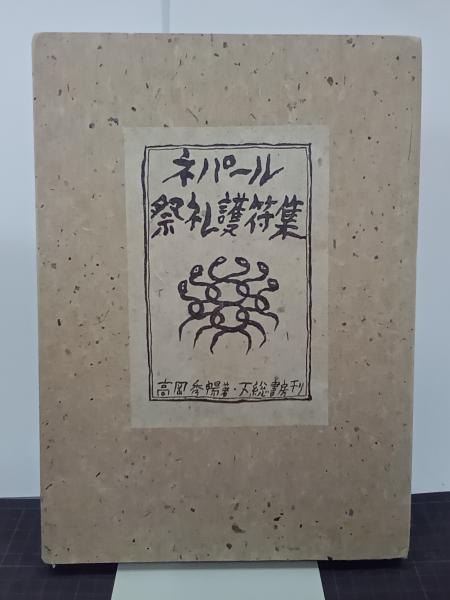 ネパール
祭礼護符集
高岡秀暢著・下総書房刊